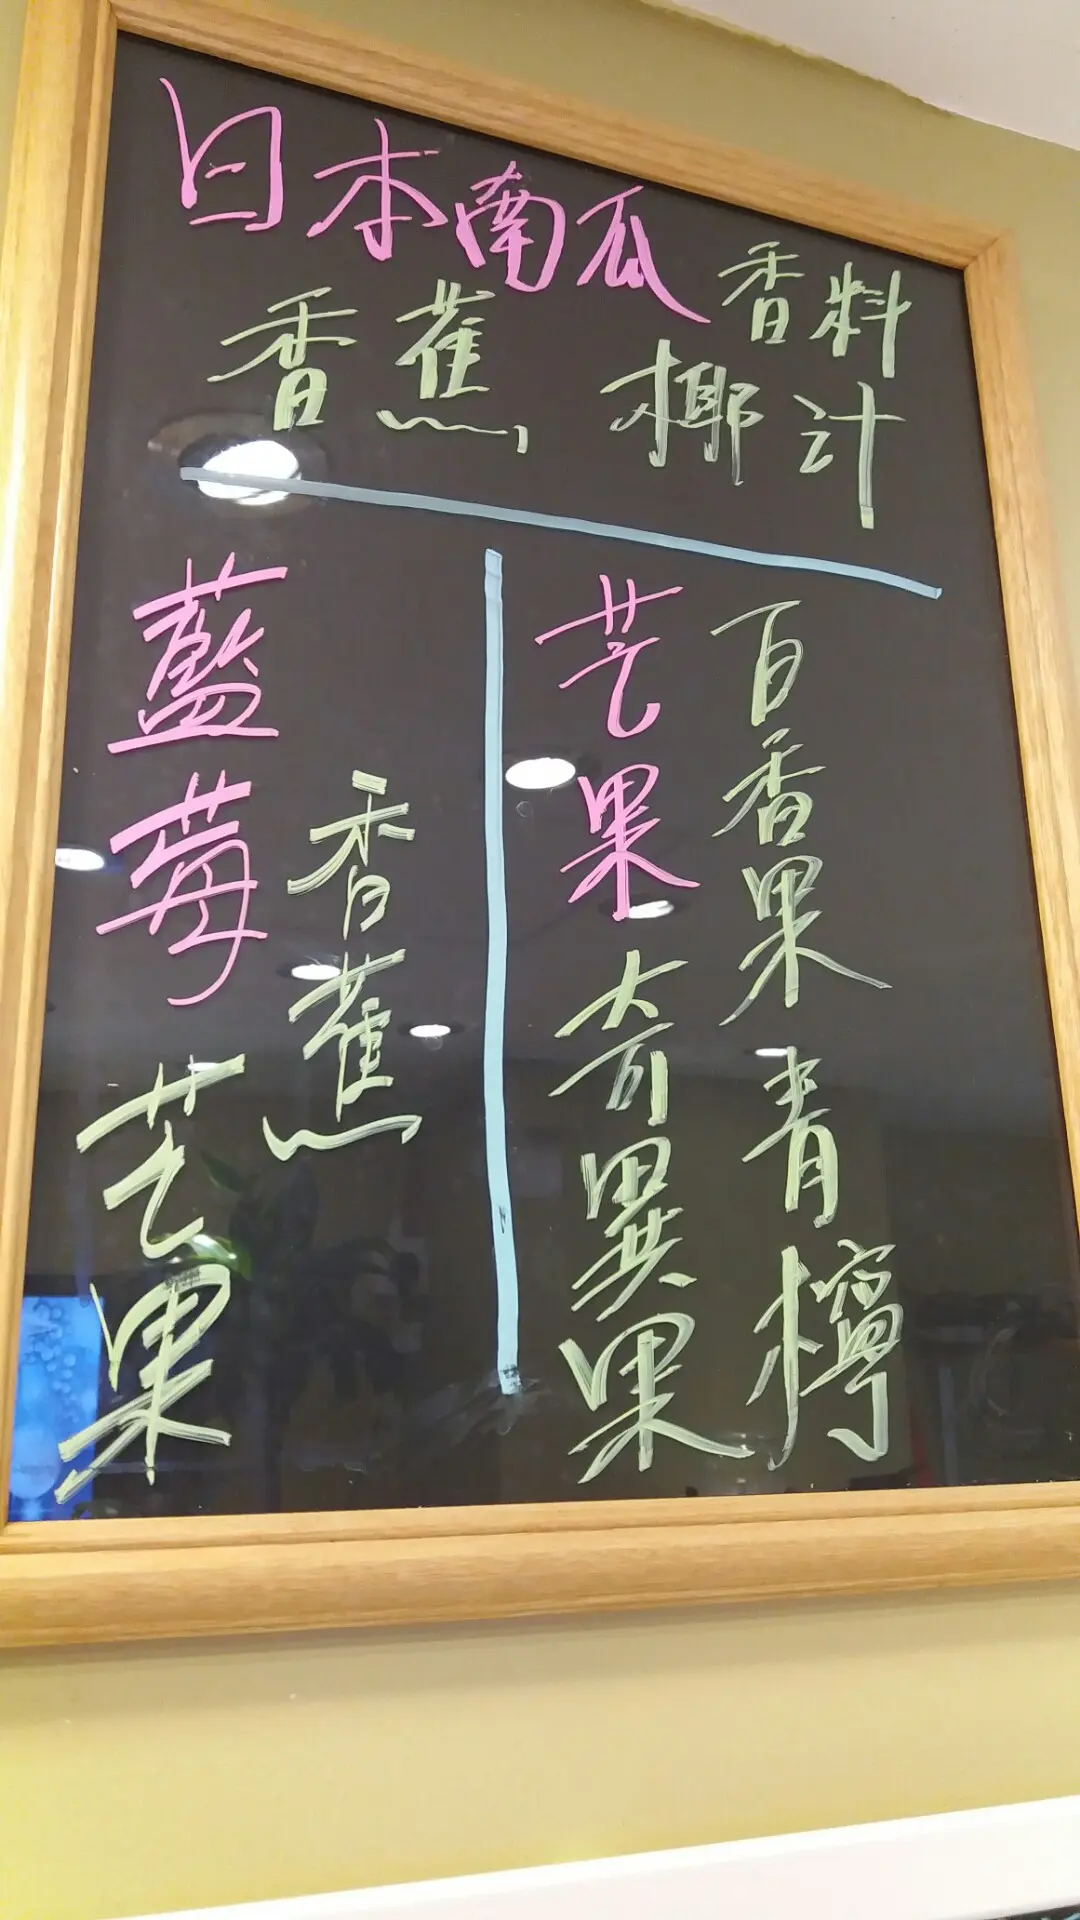 日本南瓜
香料
香蕉, 椰汁
藍莓
香蕉
芒果
芒果
奇異果
百香果
青檸